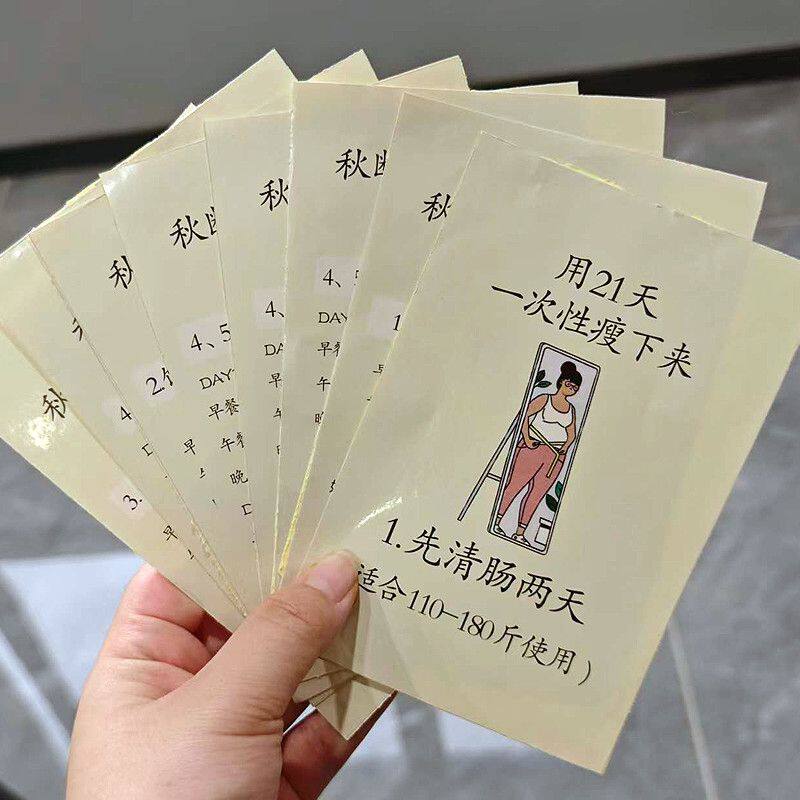 用21天
一次性瘦下来
1.先清肠两天
适合110-180斤使用)
秋
1
秋断
4、5
DAY
早餐
午
晚
秋
4、
DAY
早
午
晚
秋断
4、5
DAY
早餐
午餐
晚
D
秋
2个
早
秋
4
D
早
3.
早